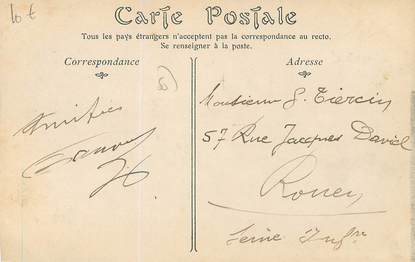 10 €
Carte Postale
Tous les pays étrangers n'acceptent pas la correspondance au recto.
Se renseigner à la poste.
Correspondance
Adresse
Amitiés
Monsieur G. Tiercin
57 Rue Jacques Daviel
Rouen
Seine Infre